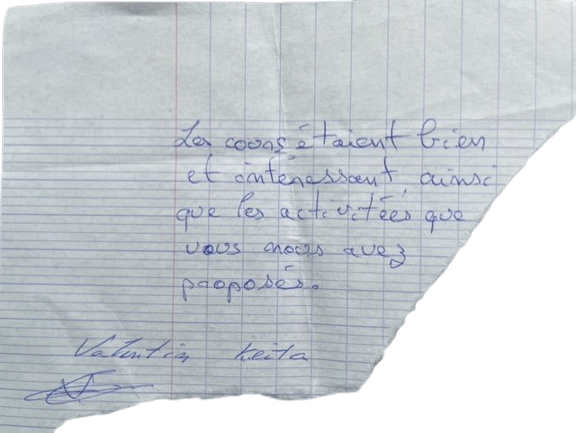 Les cours étaient bien
et intéressant, ainsi
que les activitées que
vous nous avez
proposés.
Valentin Keita